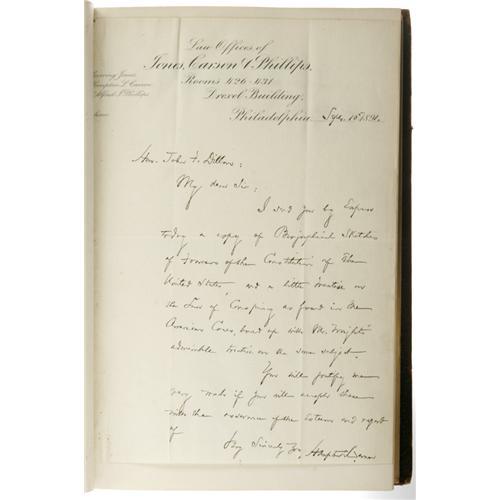 Law Offices of
Jones, Carson & Phillips.
Rooms 426-431
Drexel Building.
Philadelphia
Hampton L. Carson
Alfred I. Phillips
Hon. John F. Dillon:
My dear Sir:
I send you by Express
today a copy of Biographical Sketches
of Framers of the Constitution of the
United States and a little treatise on
the Law of Conspiracy as found in the
American Cases, bound up with Mr. Wright's
admirable treatise on the same subject.
You will gratify me
very much if you will accept these
with the assurance of the esteem and regard
of
Very Sincerely Yrs, Hampton L. Carson